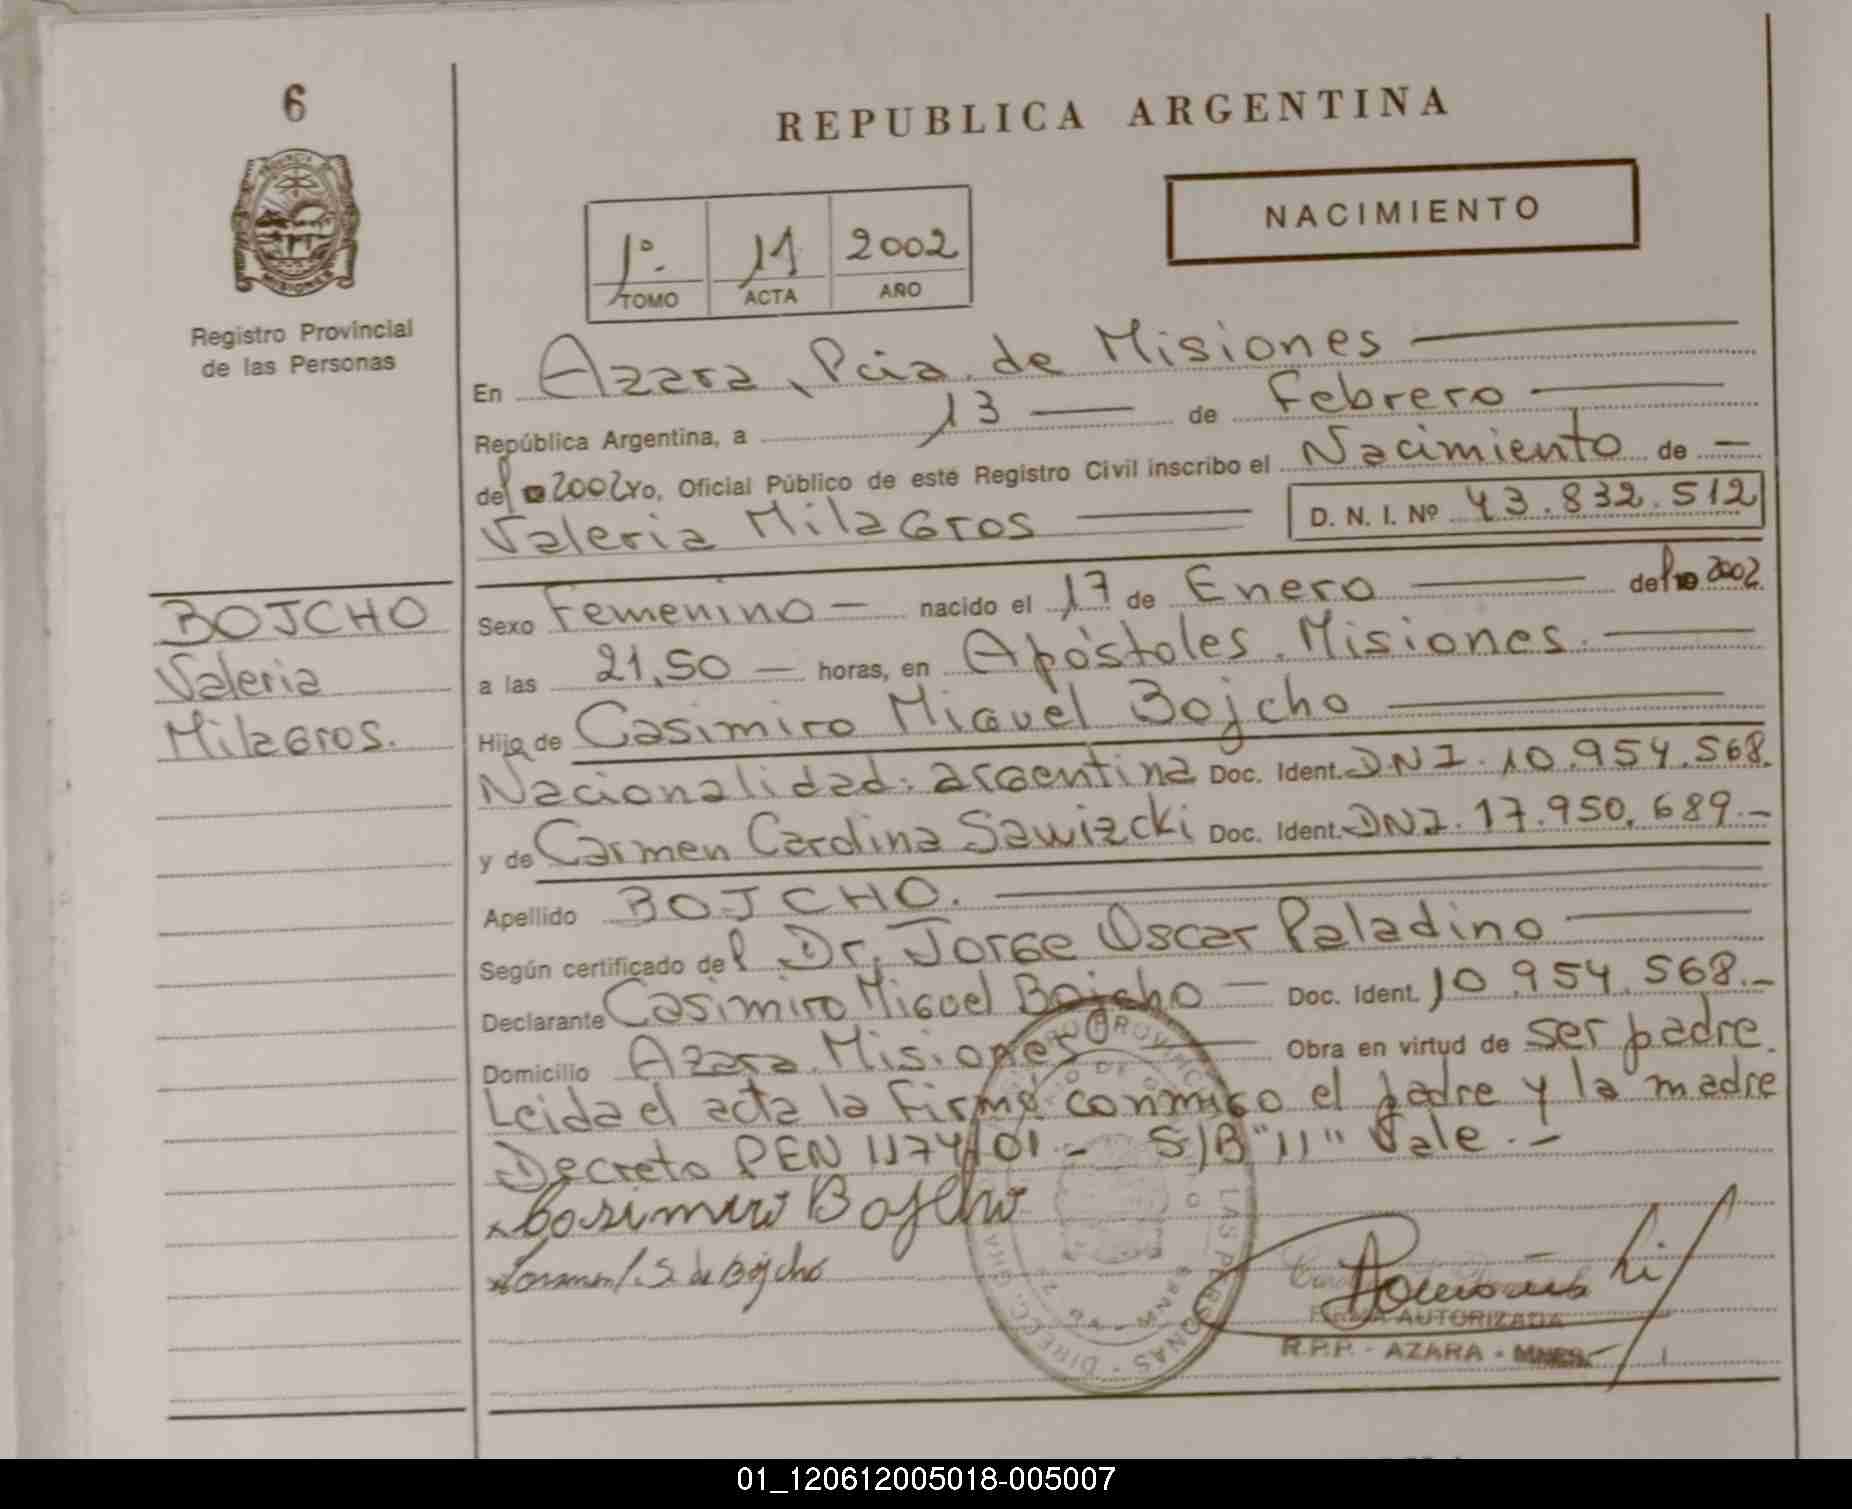 6
REPUBLICA ARGENTINA
NACIMIENTO
1º. 11 2002
TOMO ACTA AÑO
Registro Provincial
de las Personas
En Azara, Pcia. de Misiones
República Argentina, a 13 de Febrero
del 2002 Yo, Oficial Público de este Registro Civil inscribo el Nacimiento de
Valeria Milagros D. N. I. Nº 43.832.512
BOJCHO
Valeria
Milagros.
Sexo Femenino nacido el 17 de Enero del 2002.
a las 21,50 horas, en Apóstoles. Misiones.
Hija de Casimiro Miguel Bojcho
Nacionalidad: argentina Doc. Ident. DNI. 10.954.568.
y de Carmen Carolina Sawizcki Doc. Ident. DNI. 17.950.689.-
Apellido BOJCHO.
Según certificado del Dr. Jorge Oscar Paladino
Declarante Casimiro Miguel Bojcho Doc. Ident. 10.954.568.-
Domicilio Azara. Misiones Obra en virtud de ser padre.
Leida el acta la firmó conmigo el padre y la madre
Decreto PEN 1174/01.- S/B "11" Vale.-
Casimiro Bojcho
Carmen S. de Bojcho
FIRMA AUTORIZADA
R.P.P. - AZARA - MNES.
01_120612005018-005007